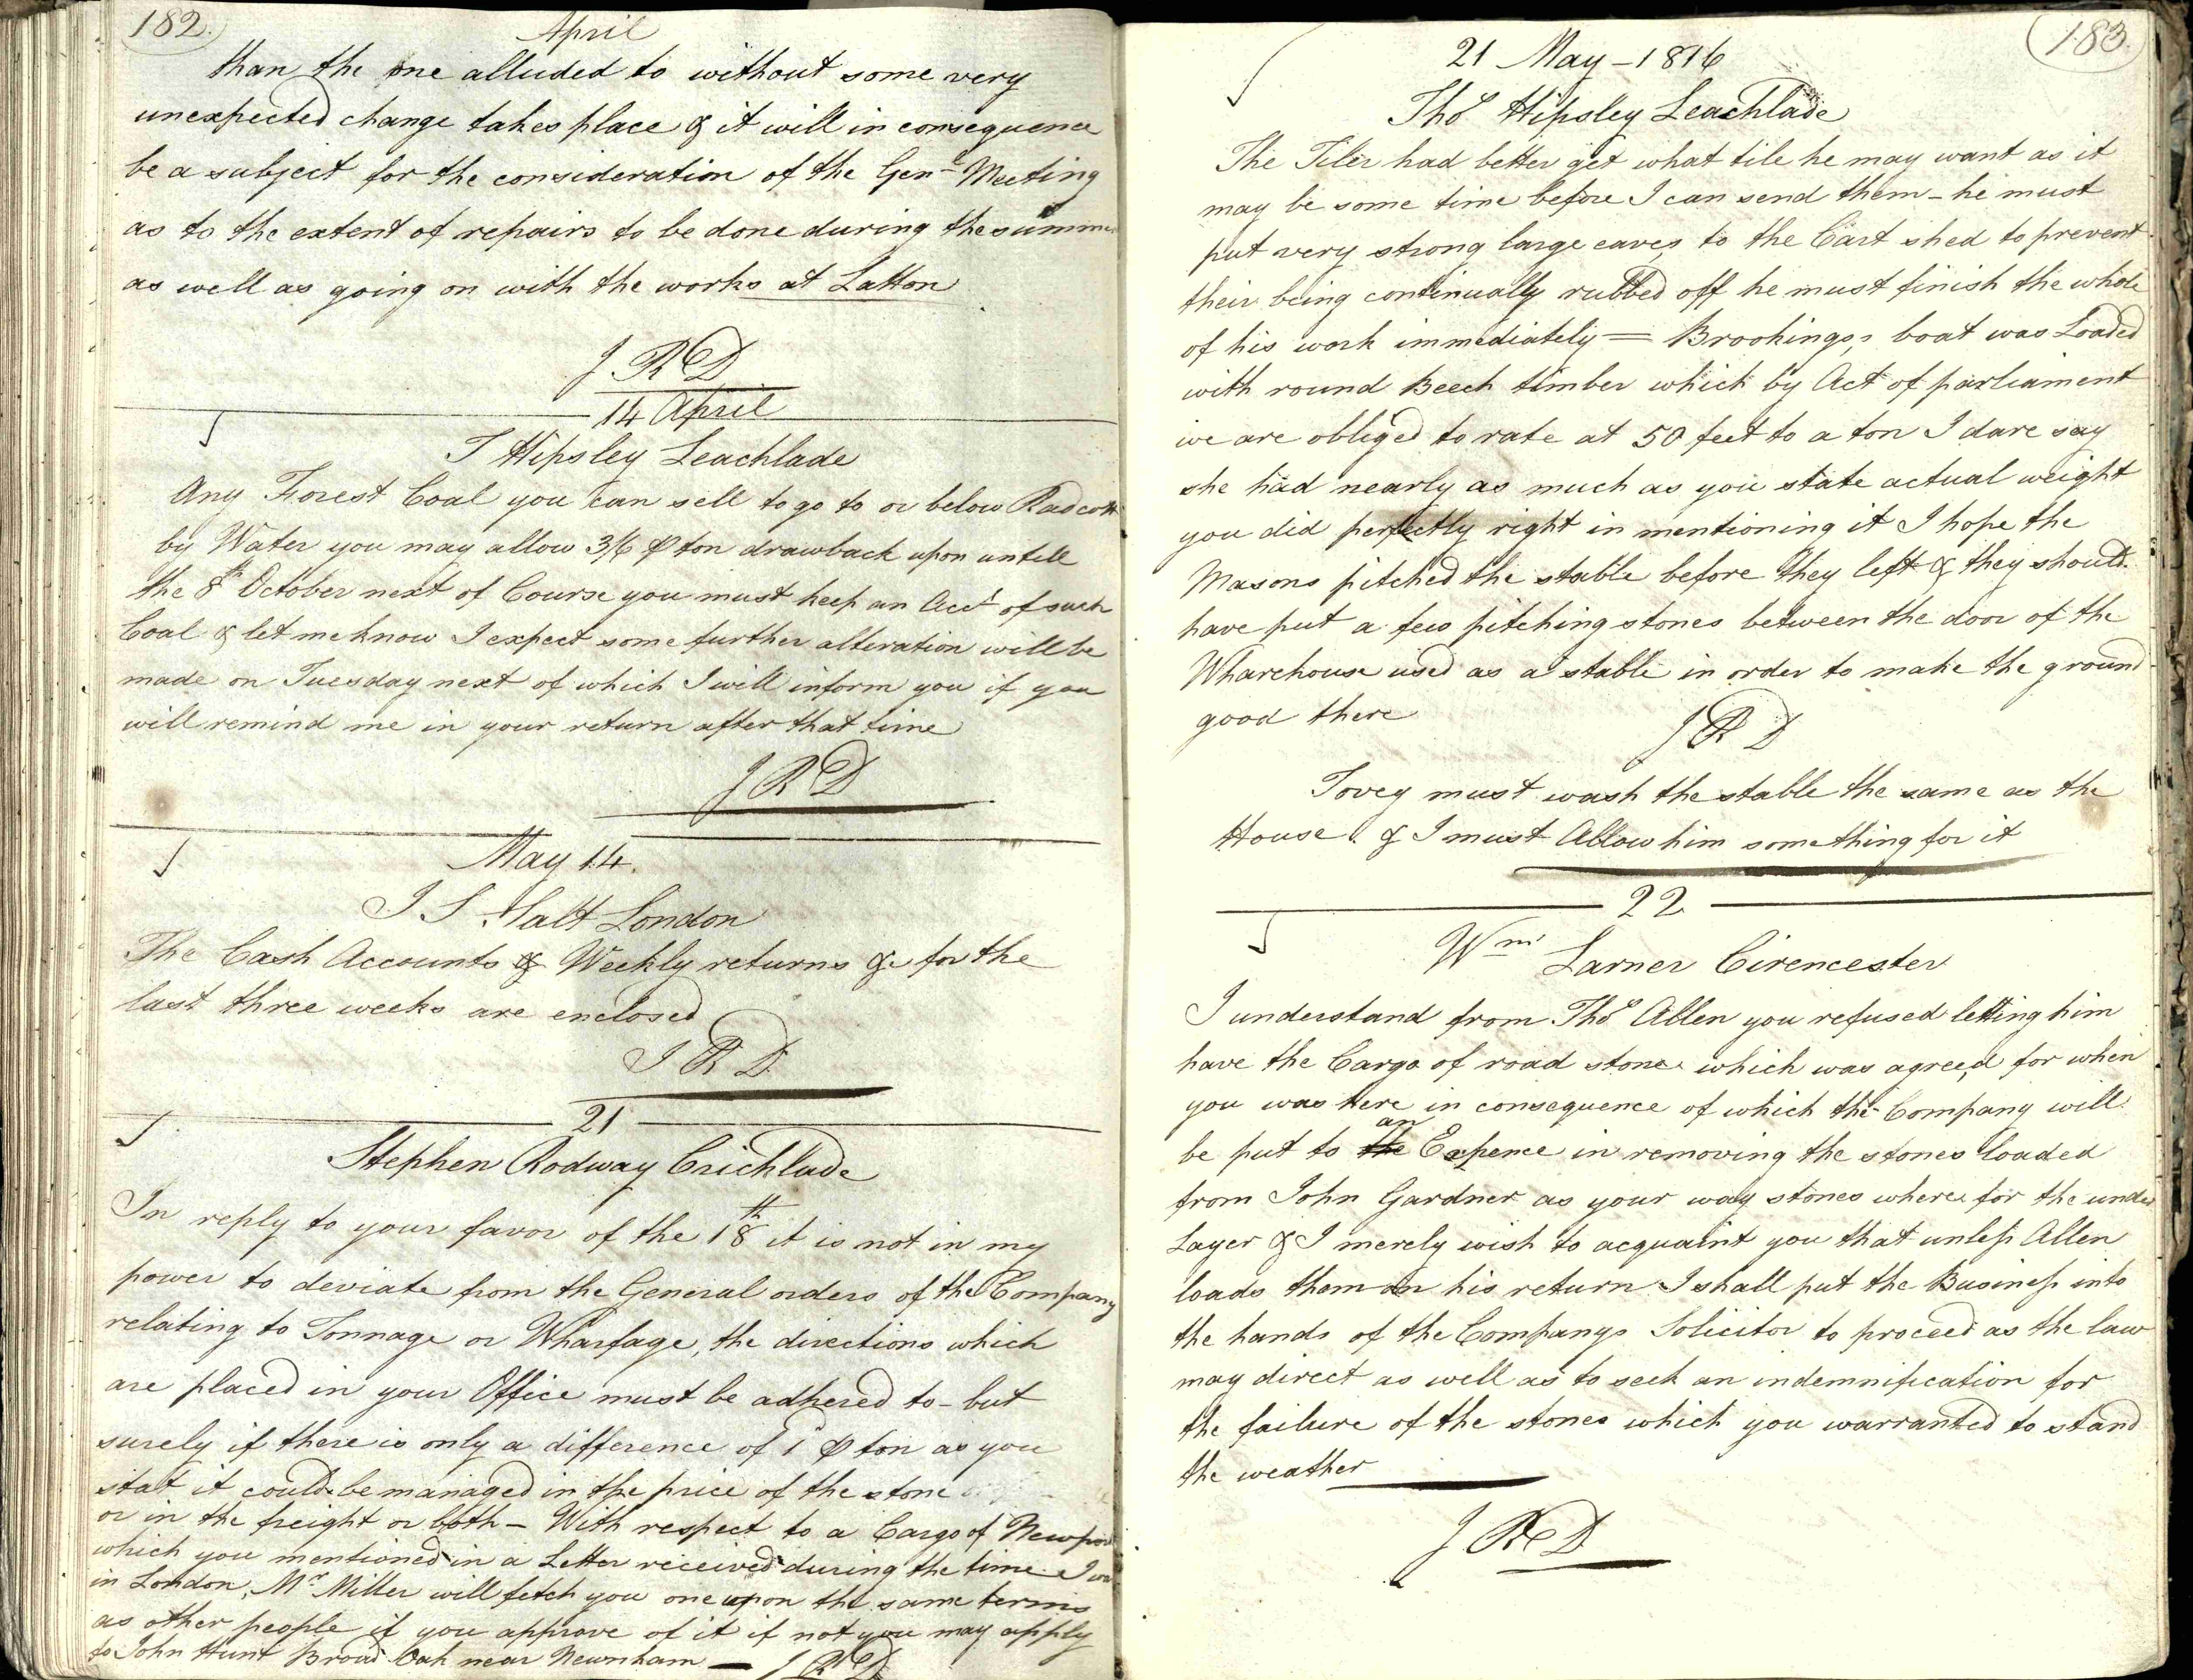 182.
April
than the one alluded to without some very
unexpected change takes place & it will in consequence
be a subject for the consideration of the Genl Meeting
as to the extent of repairs to be done during the summer
as well as going on with the works at Latton
J R D
14 April
T Hipsley Leachlade
Any Forest Coal you can sell to go to or below Radcott
by Water you may allow 3/6 ⅌ ton drawback upon untill
the 8th October next of Course you must keep an Acct of such
Coal & let me know I expect some further alteration will be
made on Tuesday next of which I will inform you if you
will remind me in your return after that time
J R D
May 14.
J S Salt London
The Cash Accounts & Weekly returns &c for the
last three weeks are enclosed
J R D
21
Stephen Rodway Cricklade
In reply to your favor of the 18th it is not in my
power to deviate from the General orders of the Company
relating to Tonnage or Wharfage, the directions which
are placed in your Office must be adhered to - but
surely if there is only a difference of 1d ⅌ ton as you
stat it could be managed in the price of the stone
or in the freight or both - With respect to a Cargo of Newport
which you mentioned in a Letter received during the time I was
in London, Mr Miller will fetch you one upon the same terms
as other people if you approve of it if not you may apply
to John Hunt Broad Oak near Newnham — J R D
183.
21 May - 1816
Thos Hipsley Leachlade
The Tiler had better get what tile he may want as it
may be some time before I can send them - he must
put very strong large eaves, to the Cart shed to prevent
their being continually rubbed off he must finish the whole
of his work immediately = Brookings, boat was Loaded
with round Beech timber which by Act of parliament
we are obliged to rate at 50 feet to a ton I dare say
she had nearly as much as you state actual weight
you did perfectly right in mentioning it I hope the
Masons pitched the stable before they left & they should
have put a few pitching stones between the door of the
Wharehouse used as a stable in order to make the ground
good there
J R D
Tovey must wash the stable the same as the
House & I must Allow him something for it
22
Wm Larner Cirencester
I understand from Thos Allen you refused letting him
have the Cargo of road stone which was agreed for when
you was here in consequence of which the Company will
be put to the an Expence in removing the stones loaded
from John Gardner as your way stones where for the under
Layer & I merely wish to acquaint you that unless Allen
loads them on his return I shall put the Business into
the hands of the Companys Solicitor to proceed as the law
may direct as well as to seek an indemnification for
the failure of the stones which you warranted to stand
the weather
J R D